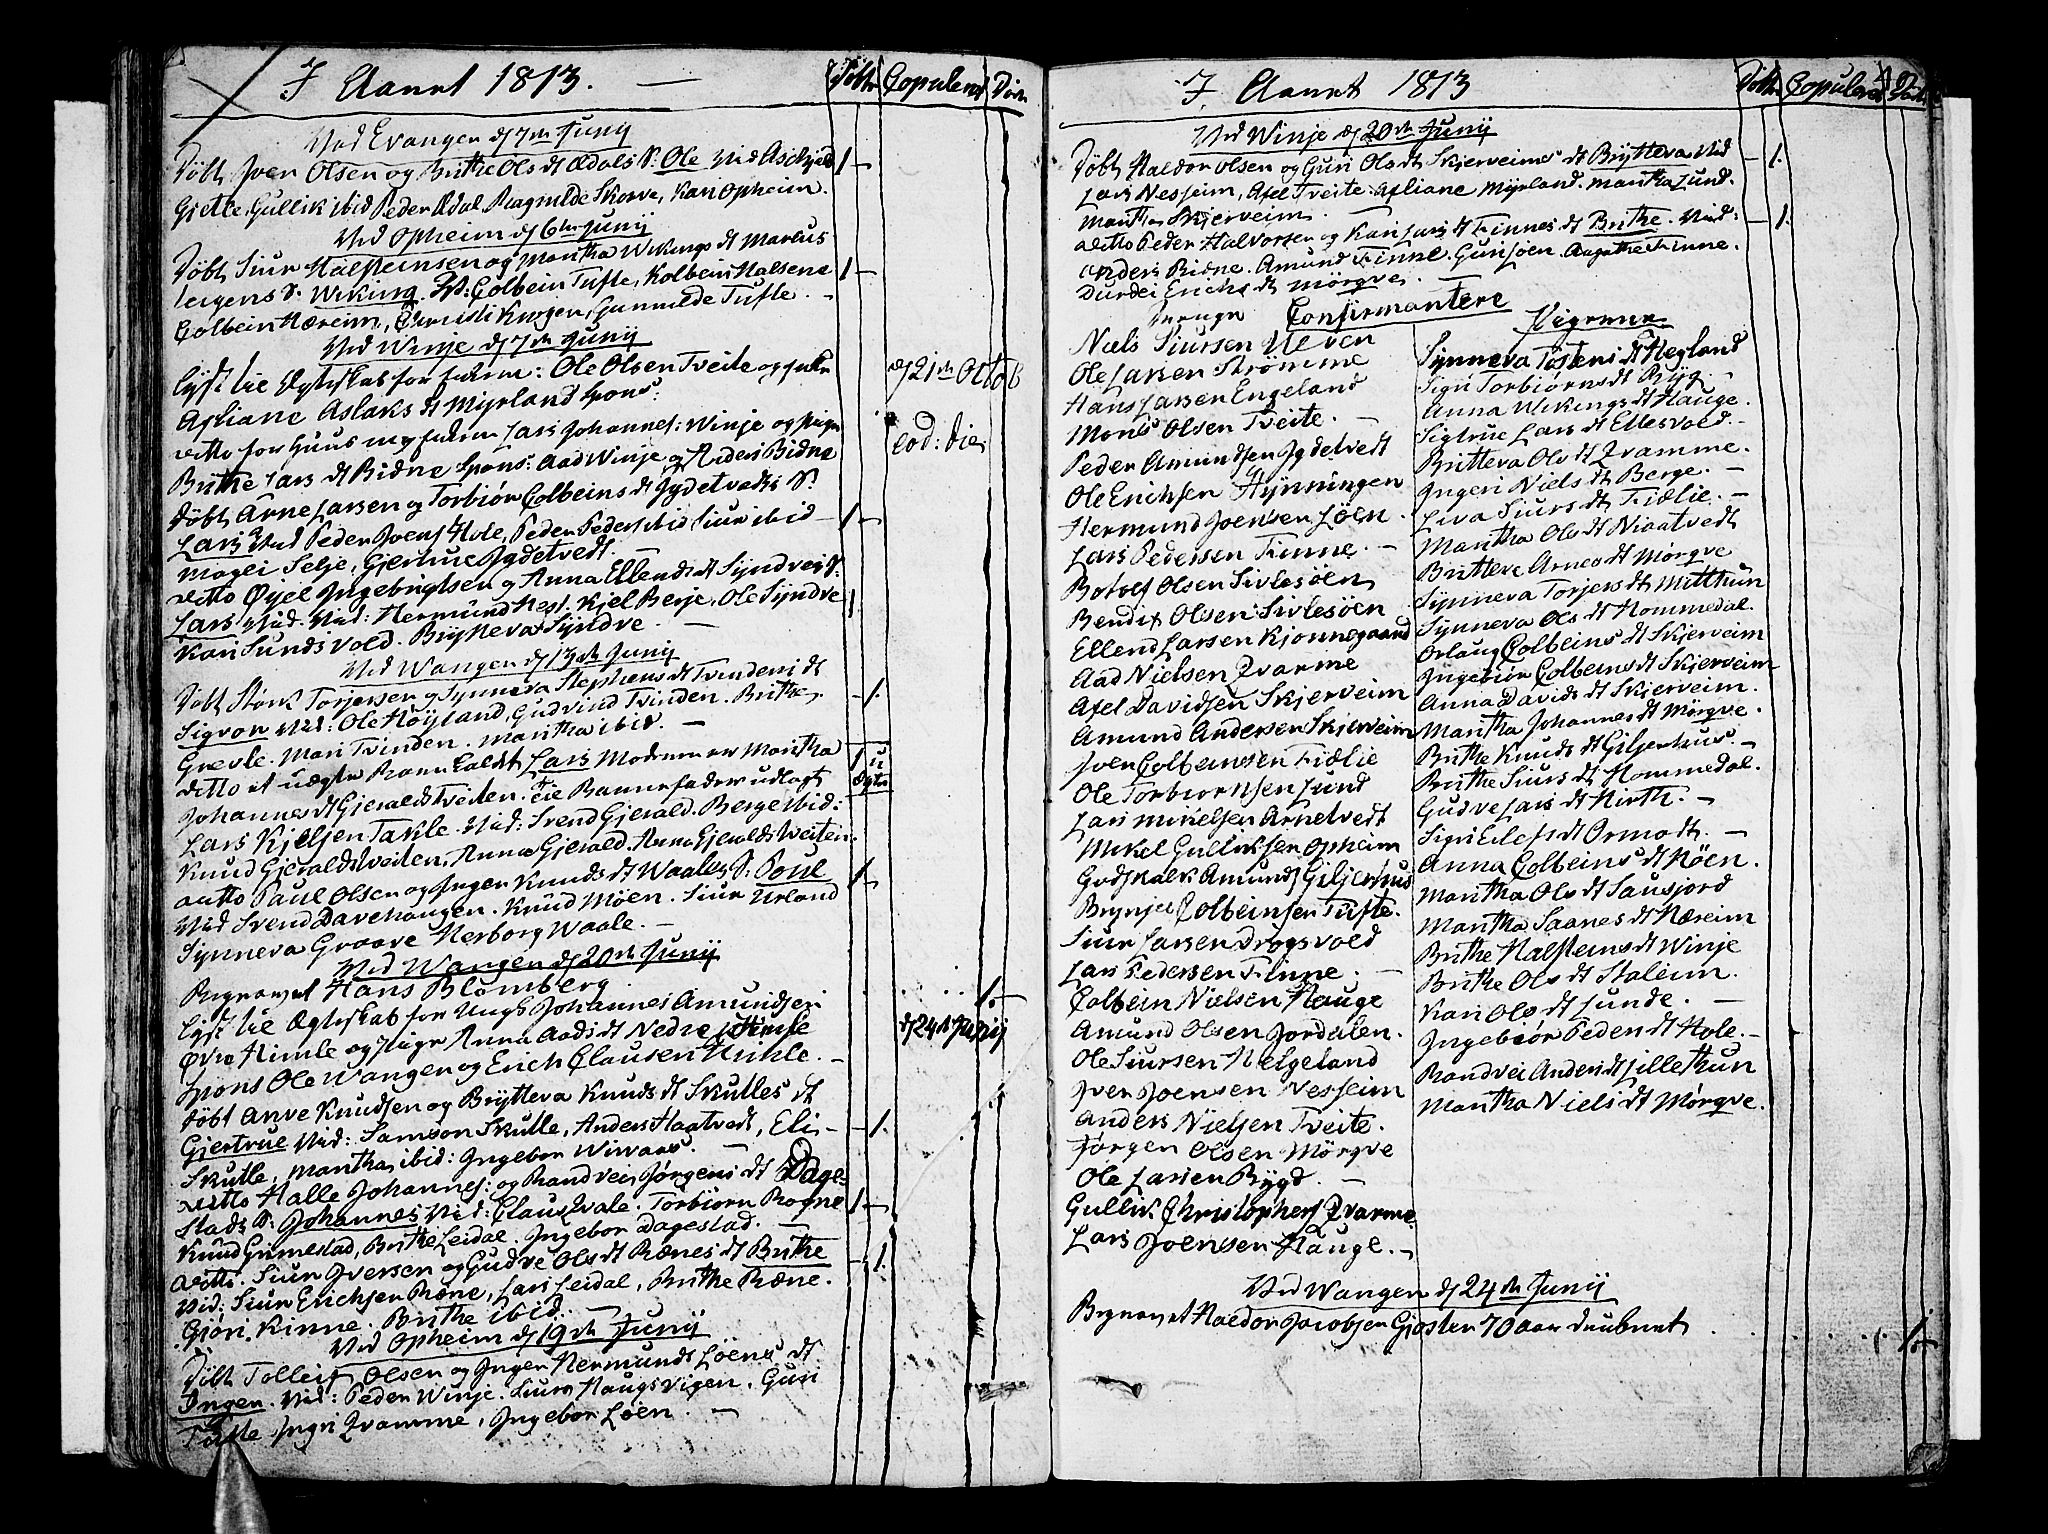 I Aaret 1813. — Döbte Copulered Döde
Ved Evangen d 7de Junij
Döbt Joen Olsen og Brithe Ols dt Ædals S. Ole Vid Aschjeld 1 —
Gjelle, Gullik ibid Peder Ædal, Ragnilde Skorve, Kari Opheim.
Ved Opheim d 6te Junij
Döbt Siur Halsteinsen og Maritha Wikings dt Marcus
teigens S. Wiking. V: Colbein Tufte, Kolbein Halsene 1 —
Colbein Næreim, Christi Kurgen, Gunnilde Tufte. —
Ved Winje d 7de Junij
Lyst til Ægteskab for: Ole Olsen Tveite og d 21de Octob
Asliane Aslaks dt Myrland Spons:
ditto for Lars Johannes: Winje og Pige eod: die
Brithe Lars dt Bidne Spons: Aad Winje og Anders Bidne
Döbt Arne Larsen og Torbiör Colbeins dt Jydetvedts S.
Lars Vid Peder Joens Hole, Peder Peders ibid Siur ibid — 1 —
Magli Selje, Gjertrue Jydetvedt. —
ditto Öyel Ingebrigtsen og Anna Ellends dt Syndves S.
Lars Vid: Hermund Nest. Kjel Berje, Ole Syndve 1.
Kari Sundsvold. Brytteva Syndve. —
Ved Wangen d 13de Junij
Döbt Störk Torjersen og Synneva Stephens dt Tvindens dt
Sigvor Vid: Ole Höyland, Gudvind Tvinden. Brithe — 1.
Grevle. Mari Tvinden. Maritha ibid. —
ditto et uægte Barn kaldt Lars Moderen er Maritha 1 u
Johannes dt Gjeraldstveiten. til Barnefader udlagt ægte
Lars Kjelsen Takle. Vid: Svend Gjerald. Berge ibid:
Knud Gjeraldstveiten, Anna Gjerald. Anna Gjeraldstveiten
ditto Paul Olsen og Inger Knuds dt Waales S. Poul 1 —
Vid Svend Davehaugen. Knud Möen. Siur Urland
Synneva Graave Herborg Waale. —
Ved Wangen d 20de Junij
Begravet Hans Blomberg 1. —
Lyst til Ægteskab for Ungk Johannes Amundsen
Övre Himle og Pige Anna Aads dt Nedre Himle d 24de Junij
Spons Ole Wangen og Erich Clausen Himle. —
Döbt Anve Knudsen og Brytteva Knuds dt Skutles dt
Gjertrue Vid: Samson Skutle, Anders Haatvedt, Eli — — 1.
Skutle, Maritha ibid: Ingebor Wivaas. —
ditto Halle Johannes: og Randvei Jörgens dt Dage-
stads S. Johannes Vid: Claus Qvale. Torbiörn Rogne 1 —
Knud Grimestad, Brithe Leidal. Ingebor Dagestad. —
ditto. Siur Iversen og Gudve Ols dt Rænes dt Brithe — 1.
Vid: Siur Erichsen Ræne, Lars Leidal, Brithe Ræne.
Gjöri Kinne. Brithe ibid. —
Ved Opheim d 19de Junij
Döbt Tolleif Olsen og Inger Hermunds Löens dt
Inger. Vid: Peder Winje. Siur Haugsvigen. Guri
Tufte Ingri Qvamme, Ingebor Löen. —
I Aaret 1813 Döbte Copulered Döde
Ved Winje d 20de Junij
Döbt Haldor Olsen og Guri Ols dt Skjerveims dt Brytteva Vid — 1.
Lars Nesheim, Axel Tveite Asliane Myrland. Maritha Lund.
Maritha Skjerveim. —
ditto Peder Halvorsen og Kari Lars dt Finnes dt Brithe. Vid: — 1.
Anders Bidne. Amund Finne. Guri Löen. Aagathe Finne.
Durdei Erichs dt Mörqve. —
Confirmantere
Pigerne
Niels Siursen Ueven
Ole Larsen Strömme
Hans Larsen Engeland
Mons Olsen Tveite. —
Peder Amundsen Jydetvedt
Ole Erichsen Hynningen
Hermund Joensen Löen.
Lars Pedersen Finne. —
Botolf Olsen Sivlesöen
Bendix Olsen Sivlesöen
Ellend Larsen Kjonnegaard
Aad Nielsen Qvarme
Axel Davidsen Skjerveim
Amund Andersen Skjerveim
Iver Colbeinsen Fiælie
Ole Torbiörnsen Lund
Lars Mikelsen Arnetvedt
Mikel Gulliksen Opheim
Godskalk Amunds Giljerhus
Brynjel Colbeinsen Tufte.
Siur Larsen Drogsvold
Lars Pedersen Finne. —
Colbein Nielsen Hauge
Amund Olsen Jordalen.
Ole Siursen Helgeland
Iver Joensen Nesheim
Anders Nielsen Tveite.
Jörgen Olsen Mörqve
Ole Larsen Bygd. —
Gullik Christophers Qvarme
Lars Joensen Hauge. —
Synneva Tostens dt Hegland
Sigri Torbiörns dt Byg. —
Anna Wikings dt Hauge.
Sigtrue Lars dt Ellesvold. —
Britteva Ols dt Qvamme. —
Ingeri Niels dt Berge. —
Liva Siurs dt Fiælie. —
Maritha Ols dt Niaatvedt
Britteve Arnes dt Mörqve
Synneva Torjers dt Mitthun
Synneva Ols dt Hommedal.
Orlaug Colbeins dt Skjerveim
Ingebiör Colbeins dt Skjerveim
Anna Davids dt Skjerveim.
Maritha Johannes dt Mörqve.
Brithe Knuds dt Giljerhus. —
Brithe Siurs dt Hommedal.
Gudve Lars dt Hirth. —
Sigri Eilefs dt Ormodt. —
Anna Colbeins dt Höen.
Maritha Ols dt Sausjord
Maritha Saanes dt Næreim
Brithe Halsteins dt Winje
Brithe Ols dt Staleim.
Kari Ols dt Lunde. —
Ingebiör Peders dt Hole. —
Randvei Anders dt Lillethun
Maritha Niels dt Mörqve.
Ved Wangen d 24de Junij
Begravet Haldor Jacobsen Gjosten 70 aar 1. —